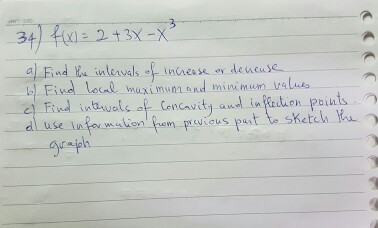 34) f(x) = 2 + 3x - x³
a) Find the intervals of increase or decrease
b) Find local maximum and minimum values
c) Find intervals of concavity and inflection points.
d) use information from previous part to sketch the
graph